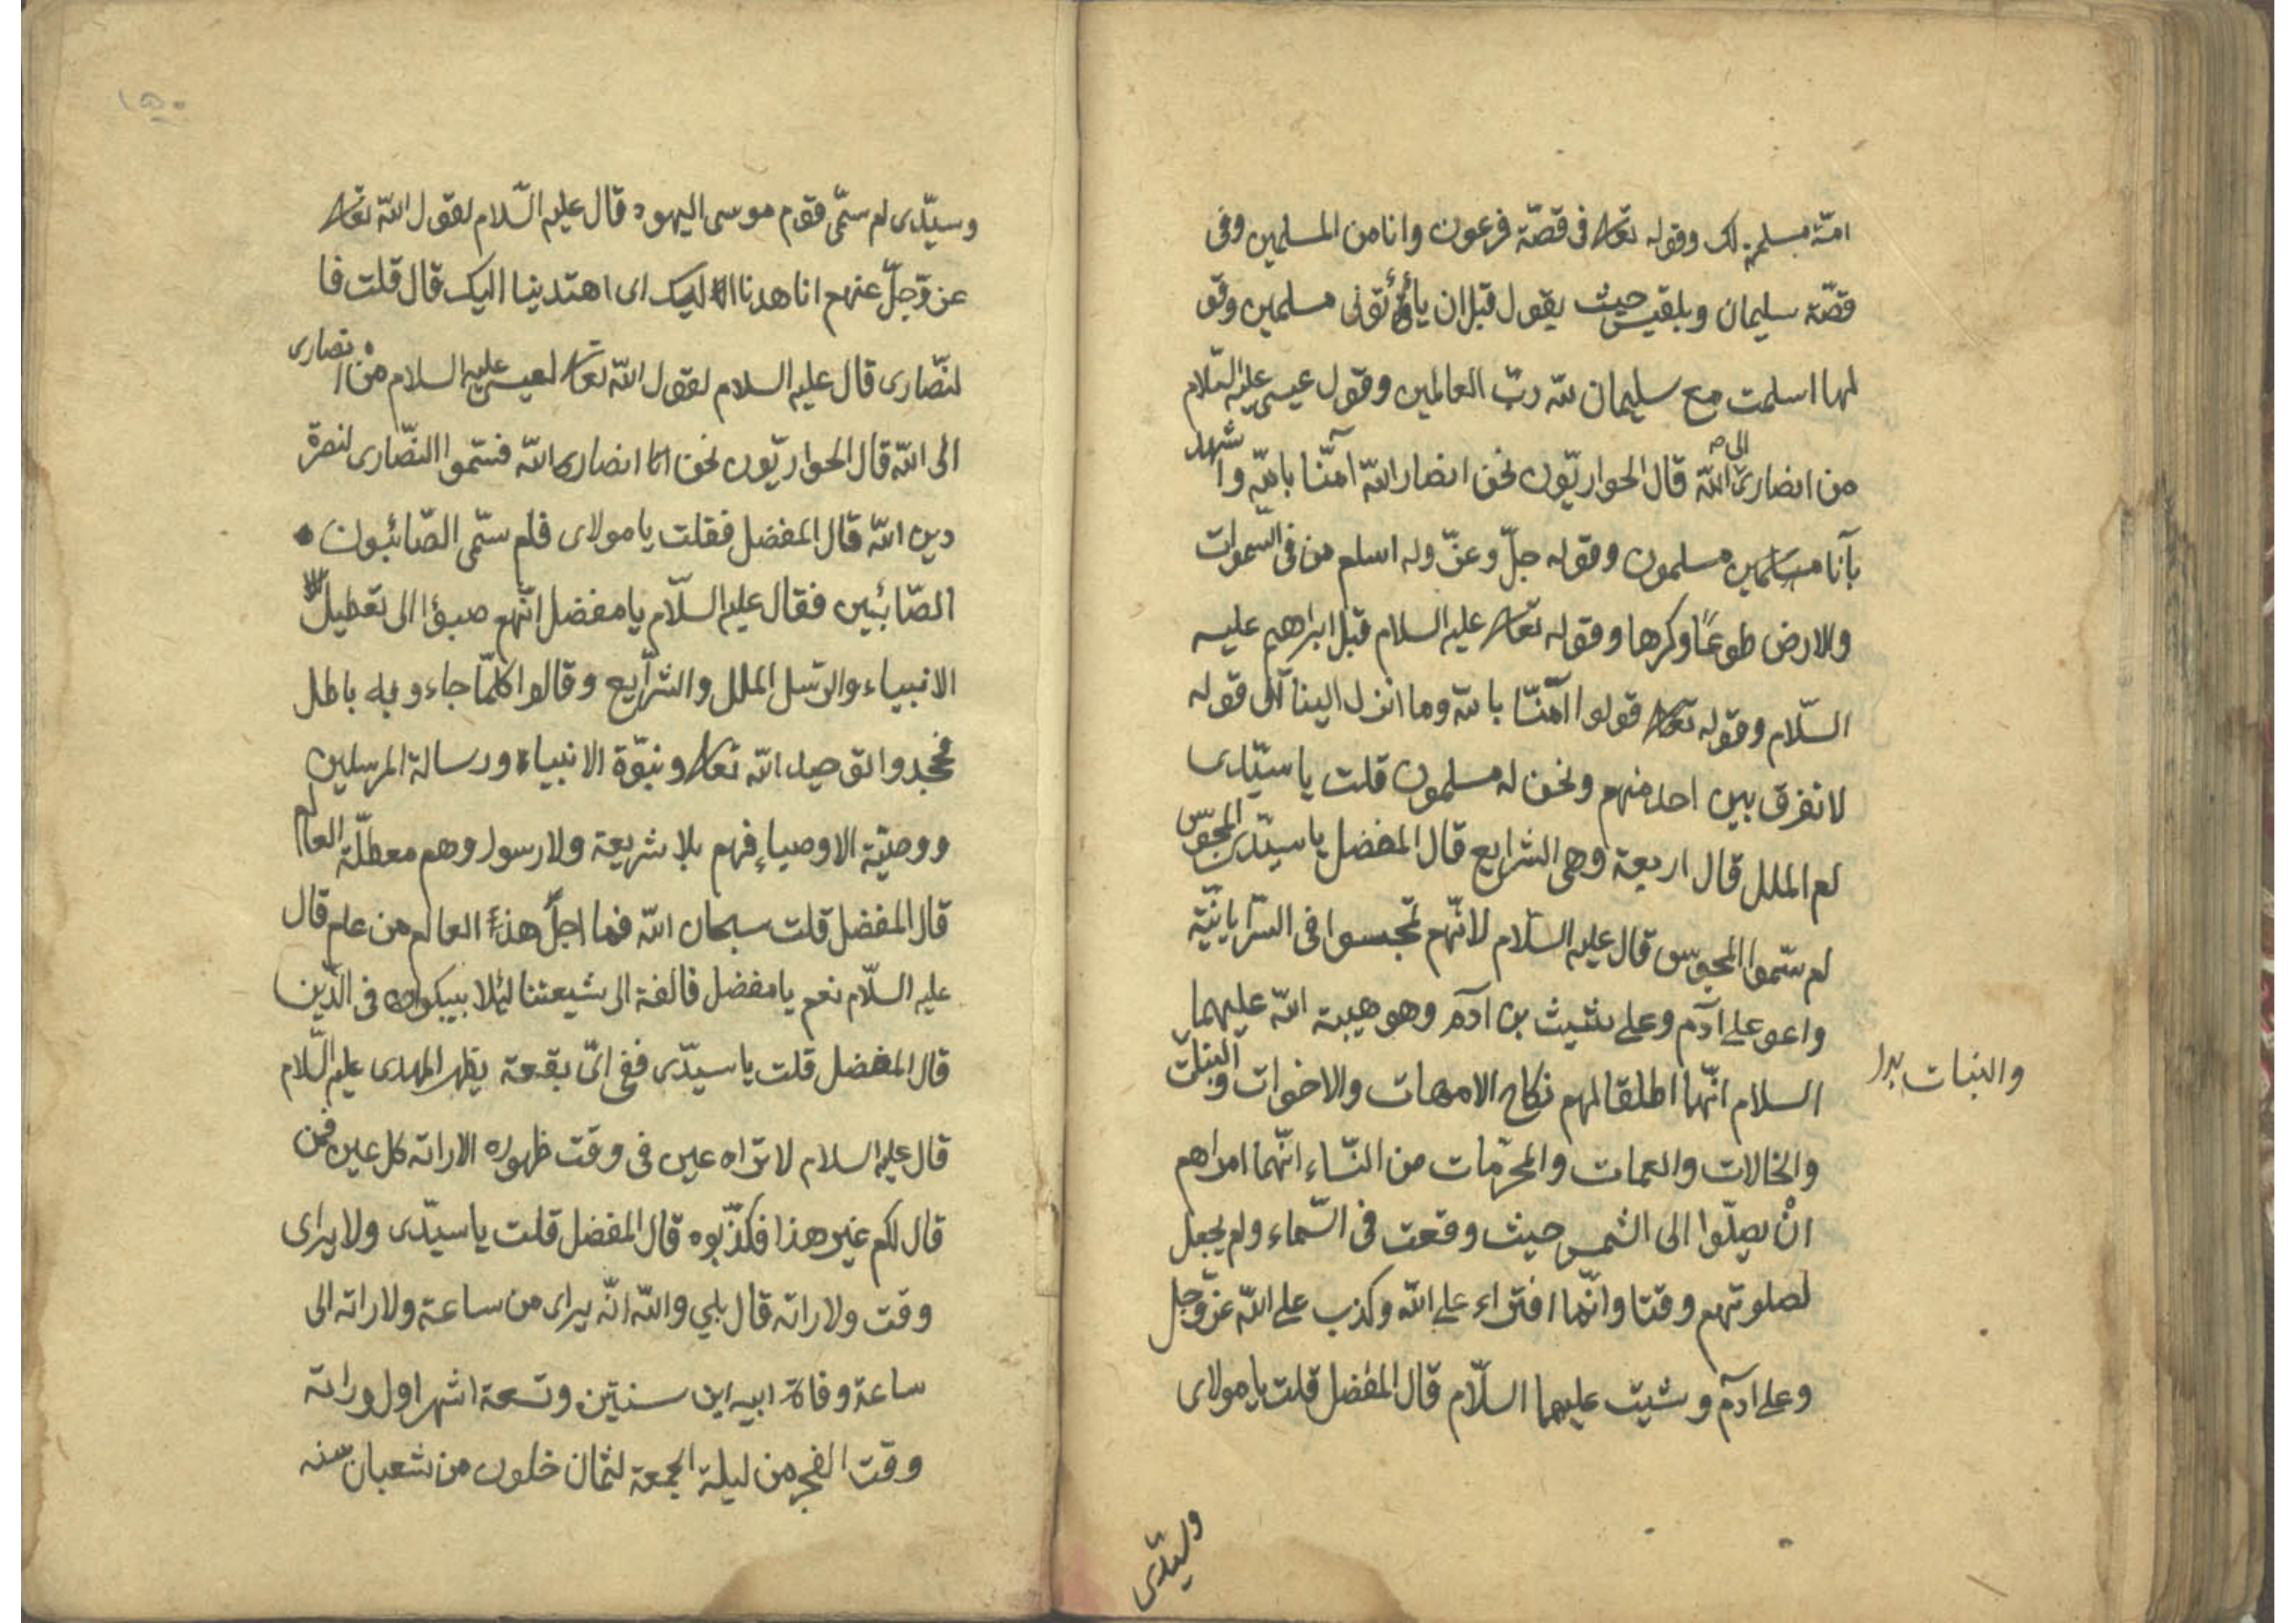 امّة مسلمة لك وقوله تعالى فى قصّة فرعون وانا من المسلمين وفى
قصّة سليمان وبلقيس حيث يقول قبل ان يأتونى مسلمين وقو
لها اسلمت مع سليمان لله ربّ العالمين وقول عيسى عليه السّلام
من انصارى الى الله قال الحواريّون نحن انصار الله آمنّا بالله واشهد
بآنا مسلمين مسلمون وقوله جلّ وعزّ وله اسلم من فى السموات
والارض طوعًا وكرها وقوله تعالى عليه السلام قبل ابراهيم عليه
السّلام وقوله تعالى قولوا آمنّا بالله وما انزل الينا الى قوله
لا نفرق بين احد منهم ونحن له مسلمون قلت يا سيّدى
كم الملل قال اربعة وهى الشرايع قال المفضل يا سيّدى المجوس
لم سمّوا المجوس قال عليه السّلام لانّهم تمجسوا فى السّريانيّة
وادعو على آدم وعلى شيث بن آدم وهو هيبة الله عليهما
السلام انّهما اطلقا لهم نكاح الامهات والاخوات والبنات
والبنات بدل
والخالات والعمات والمحرّمات من النّساء انّهما امراهم
انْ يصلّوا الى الشمس حيث وقعت فى السّماء ولم يجعل
لصلوتهم وقتا وانّما افتراء على الله وكذب على الله عزّ وجل
وعلى آدم وشيث عليهما السلّام قال المفضل قلت يا مولاى
وسيّدى
١٥٠
وسيّدى لم سمّى قوم موسى اليهود قال عليه السّلام لقول الله تعالى
عزّ وجلّ عنهم انا هدنا اليك اى اهتدينا اليك قال قلت فا
لنّصارى قال عليه السلام لقول الله تعالى لعيسى عليه السلام من انصارى
الى الله قال الحواريّون نحن انصار الله فسمّوا النّصارى لنصرة
دين الله قال المفضل فقلت يا مولاى فلم سمّى الصّائبون
الصّائبين فقال عليه السلّام يا مفضل انّهم صبؤا الى تعطيل
الانبياء والرّسل الملل والشرايع وقالوا كلّما جاءو به باطل
فجحدوا توحيد الله تعالى ونبوّة الانبياء ورسالة المرسلين
ووصيّة الاوصياء فهم بلا شريعة ولا رسول وهم معطلّة العالم
قال المفضل قلت سبحان الله فما اجلّ هذا العالم من علم قال
عليه السلّام نعم يا مفضل فالقه الى شيعتنا لئلا يشكوا فى الدّين
قال المفضل قلت يا سيّدى ففى اىّ بقعة يظهر المهدى عليه السّلام
قال عليه السلام لا تراه عين فى وقت ظهوره الا راته كل عين فمن
قال لكم غير هذا فكذّبوه قال المفضل قلت يا سيّدى ولا يراى
وقت ولاراته قال بلي والله انّه يراى من ساعة ولاراته الى
ساعة وفاة ابيه اين سنتين وتسعة اشهر اول وراته
وقت الفجر من ليلة الجمعة لثمان خلون من شعبان سنه